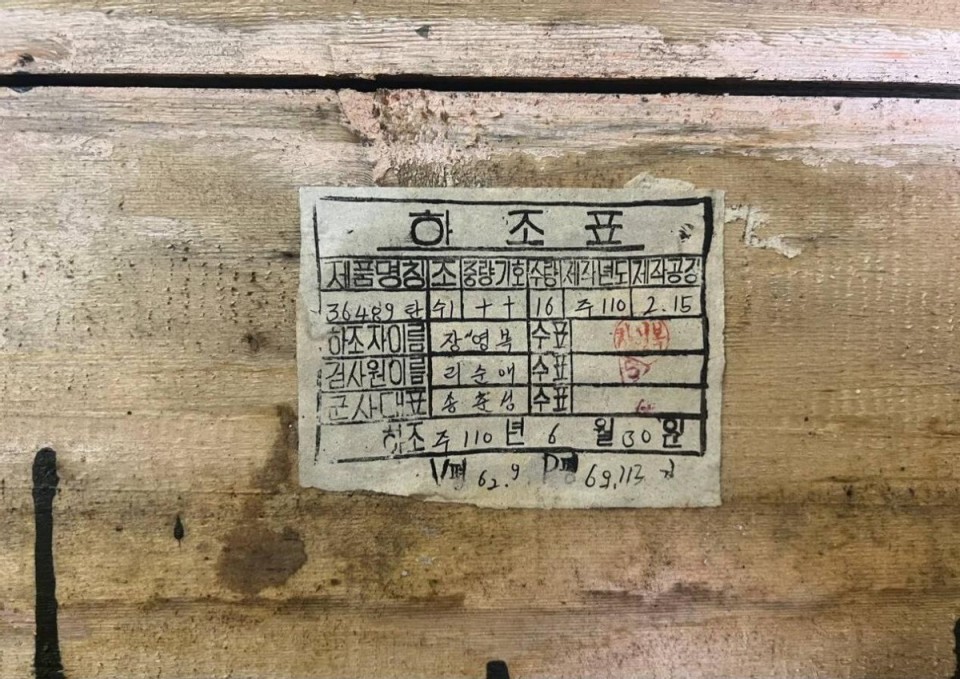 하조표
제품명칭 조 중량기호 수량 제작년도 제작공장
36489 탄 수1 ++ 16 주110 2.15
하조자이름 장영복 수표
검사원이름 리순애 수표
군사대표 송춘성 수표
하조 주110년 6월 30일
V평 62.9 P평 69,113